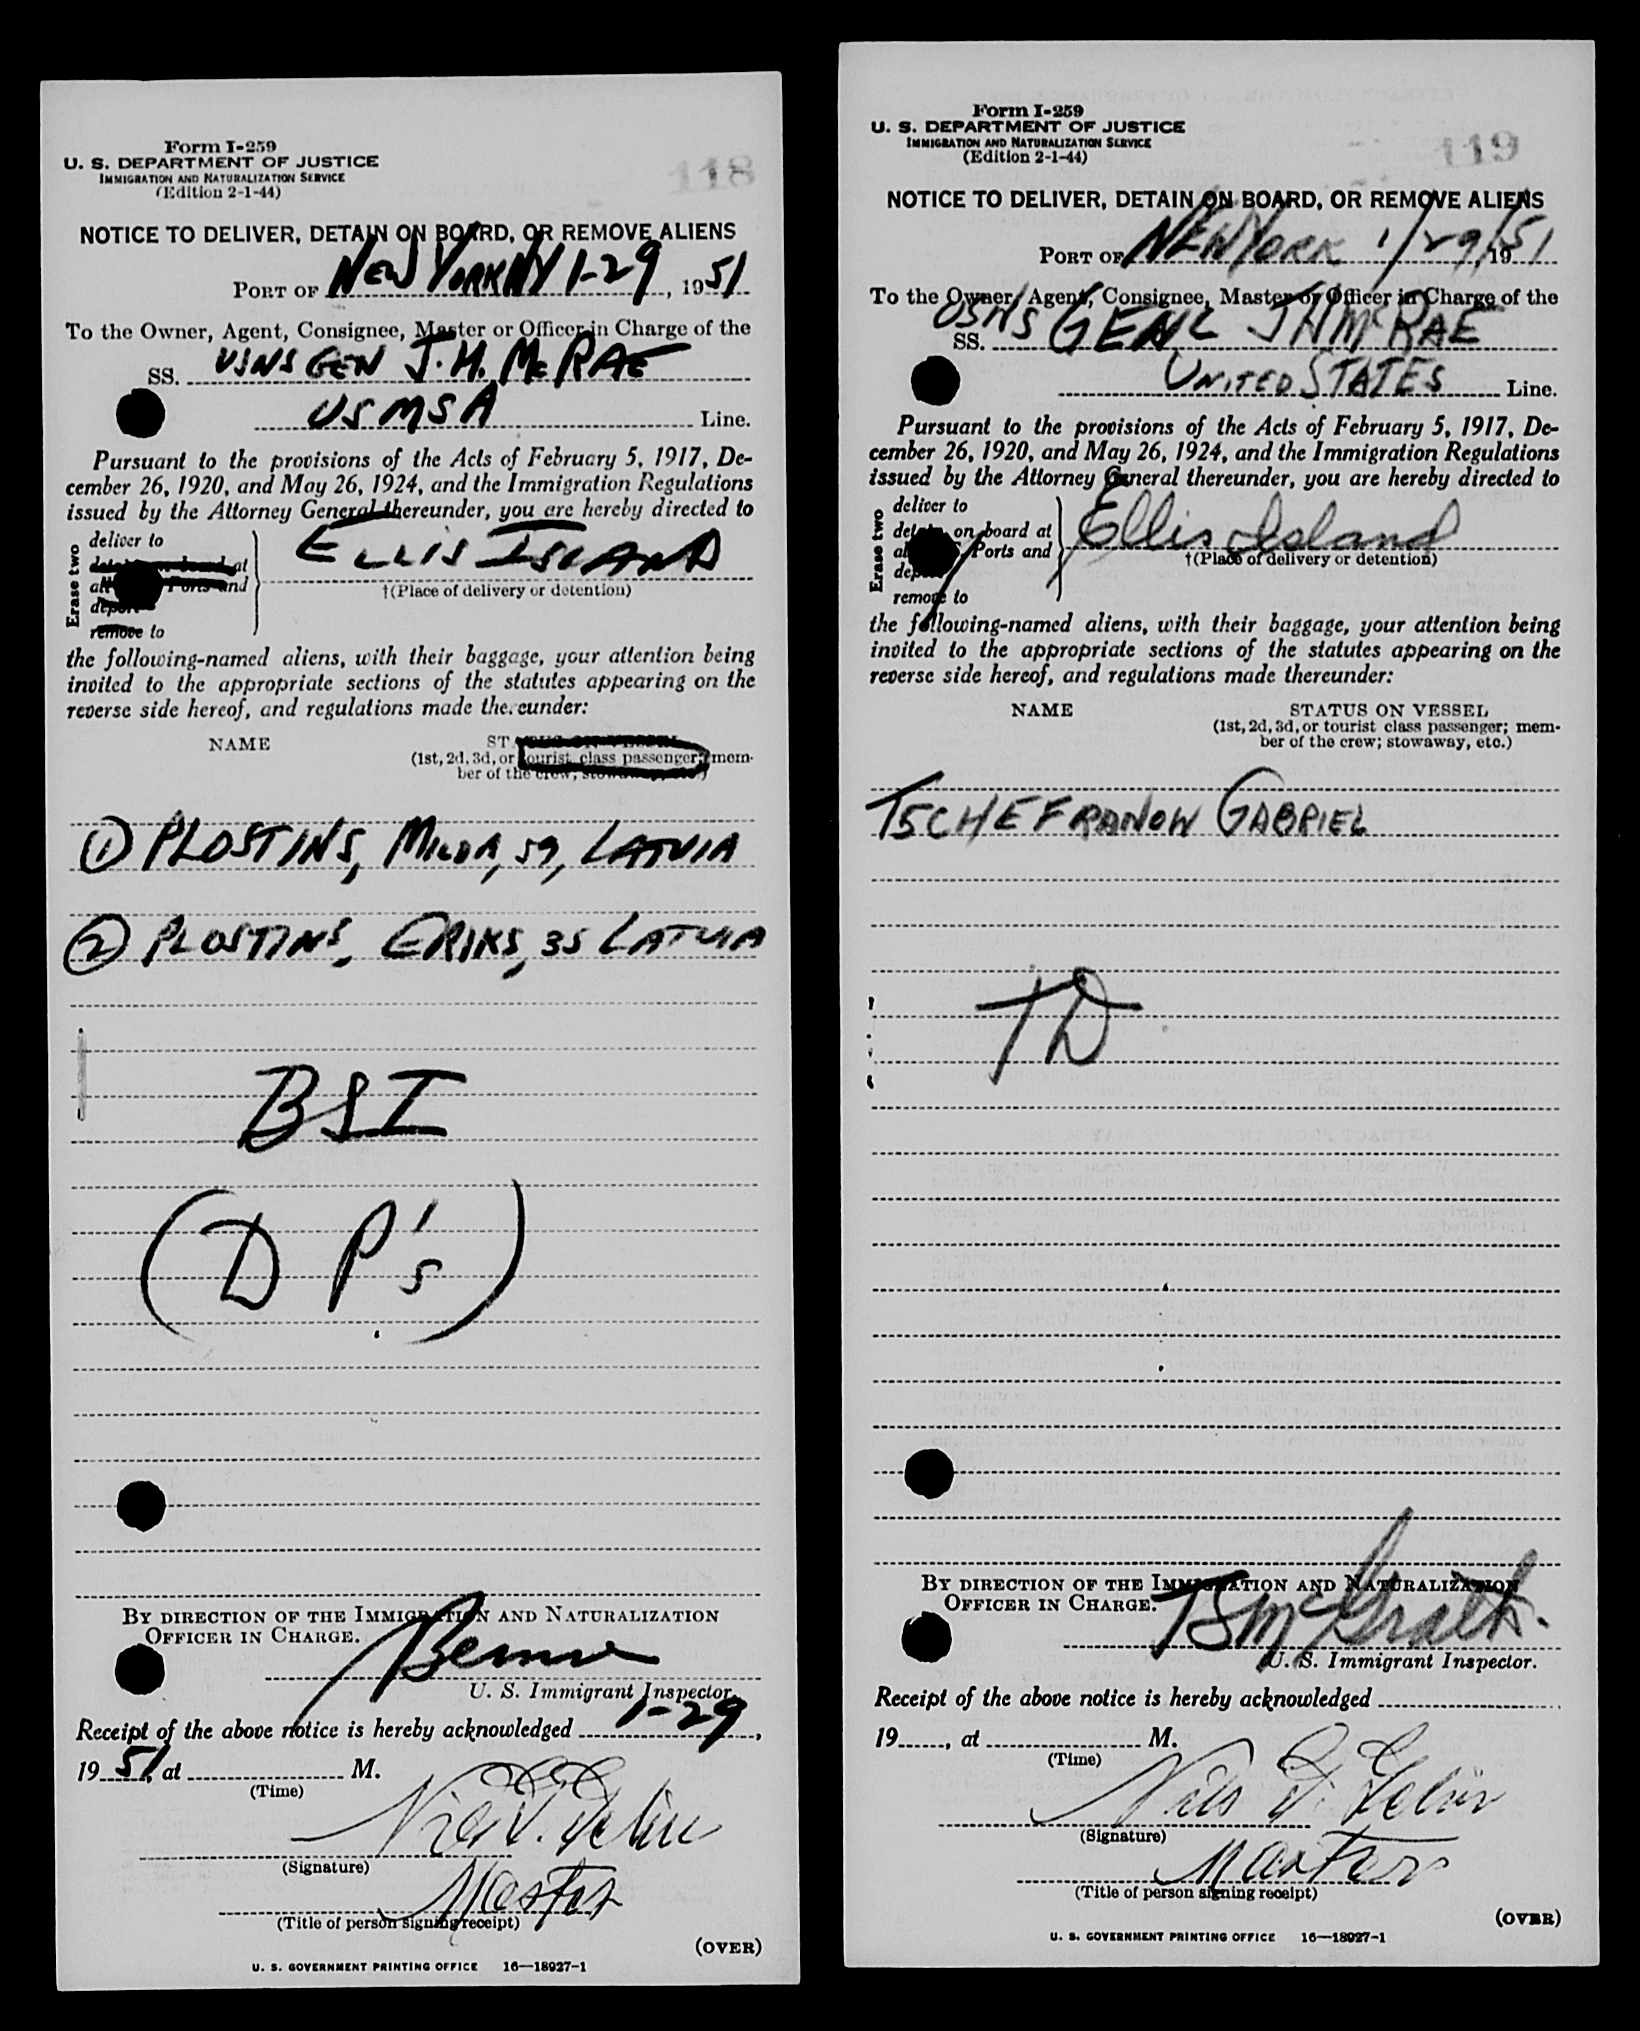 Form I-259
U. S. DEPARTMENT OF JUSTICE
IMMIGRATION AND NATURALIZATION SERVICE
(Edition 2-1-44)
118
NOTICE TO DELIVER, DETAIN ON BOARD, OR REMOVE ALIENS
PORT OF NEW YORK NY 1-29, 1951
To the Owner, Agent, Consignee, Master or Officer in Charge of the
SS. USNS GEN J. H. Mc RAE
USMSA Line.
Pursuant to the provisions of the Acts of February 5, 1917, De-
cember 26, 1920, and May 26, 1924, and the Immigration Regulations
issued by the Attorney General thereunder, you are hereby directed to
Erase two
deliver to
detain on board at
all Ports and
deport
remove to
ELLIS ISLAND
†(Place of delivery or detention)
the following-named aliens, with their baggage, your attention being
invited to the appropriate sections of the statutes appearing on the
reverse side hereof, and regulations made thereunder:
NAME STATUS ON VESSEL
(1st, 2d, 3d, or tourist class passenger; mem-
ber of the crew; stowaway, etc.)
① PLOSTINS, MILDA, 59, LATVIA
② PLOSTINS, ERIKS, 35 LATVIA
BSI
(DP's)
BY DIRECTION OF THE IMMIGRATION AND NATURALIZATION
OFFICER IN CHARGE.
U. S. Immigrant Inspector.
Receipt of the above notice is hereby acknowledged 1-29,
1951, at M.
(Time)
(Signature)
Master
(Title of person signing receipt)
(OVER)
U. S. GOVERNMENT PRINTING OFFICE 16—18927-1
Form I-259
U. S. DEPARTMENT OF JUSTICE
IMMIGRATION AND NATURALIZATION SERVICE
(Edition 2-1-44)
119
NOTICE TO DELIVER, DETAIN ON BOARD, OR REMOVE ALIENS
PORT OF NEW YORK 1/29/51 19
To the Owner, Agent, Consignee, Master or Officer in Charge of the
SS. USNS GENL JH McRAE
UNITED STATES Line.
Pursuant to the provisions of the Acts of February 5, 1917, De-
cember 26, 1920, and May 26, 1924, and the Immigration Regulations
issued by the Attorney General thereunder, you are hereby directed to
Erase two
deliver to
detain on board at
all Ports and
deport
remove to
Ellis Island
†(Place of delivery or detention)
the following-named aliens, with their baggage, your attention being
invited to the appropriate sections of the statutes appearing on the
reverse side hereof, and regulations made thereunder:
NAME STATUS ON VESSEL
(1st, 2d, 3d, or tourist class passenger; mem-
ber of the crew; stowaway, etc.)
TSCHEFRANOW GABRIEL
TD
BY DIRECTION OF THE IMMIGRATION AND NATURALIZATION
OFFICER IN CHARGE.
McGrath
U. S. Immigrant Inspector.
Receipt of the above notice is hereby acknowledged
19 , at M.
(Time)
(Signature)
Master
(Title of person signing receipt)
(OVER)
U. S. GOVERNMENT PRINTING OFFICE 16—18927-1